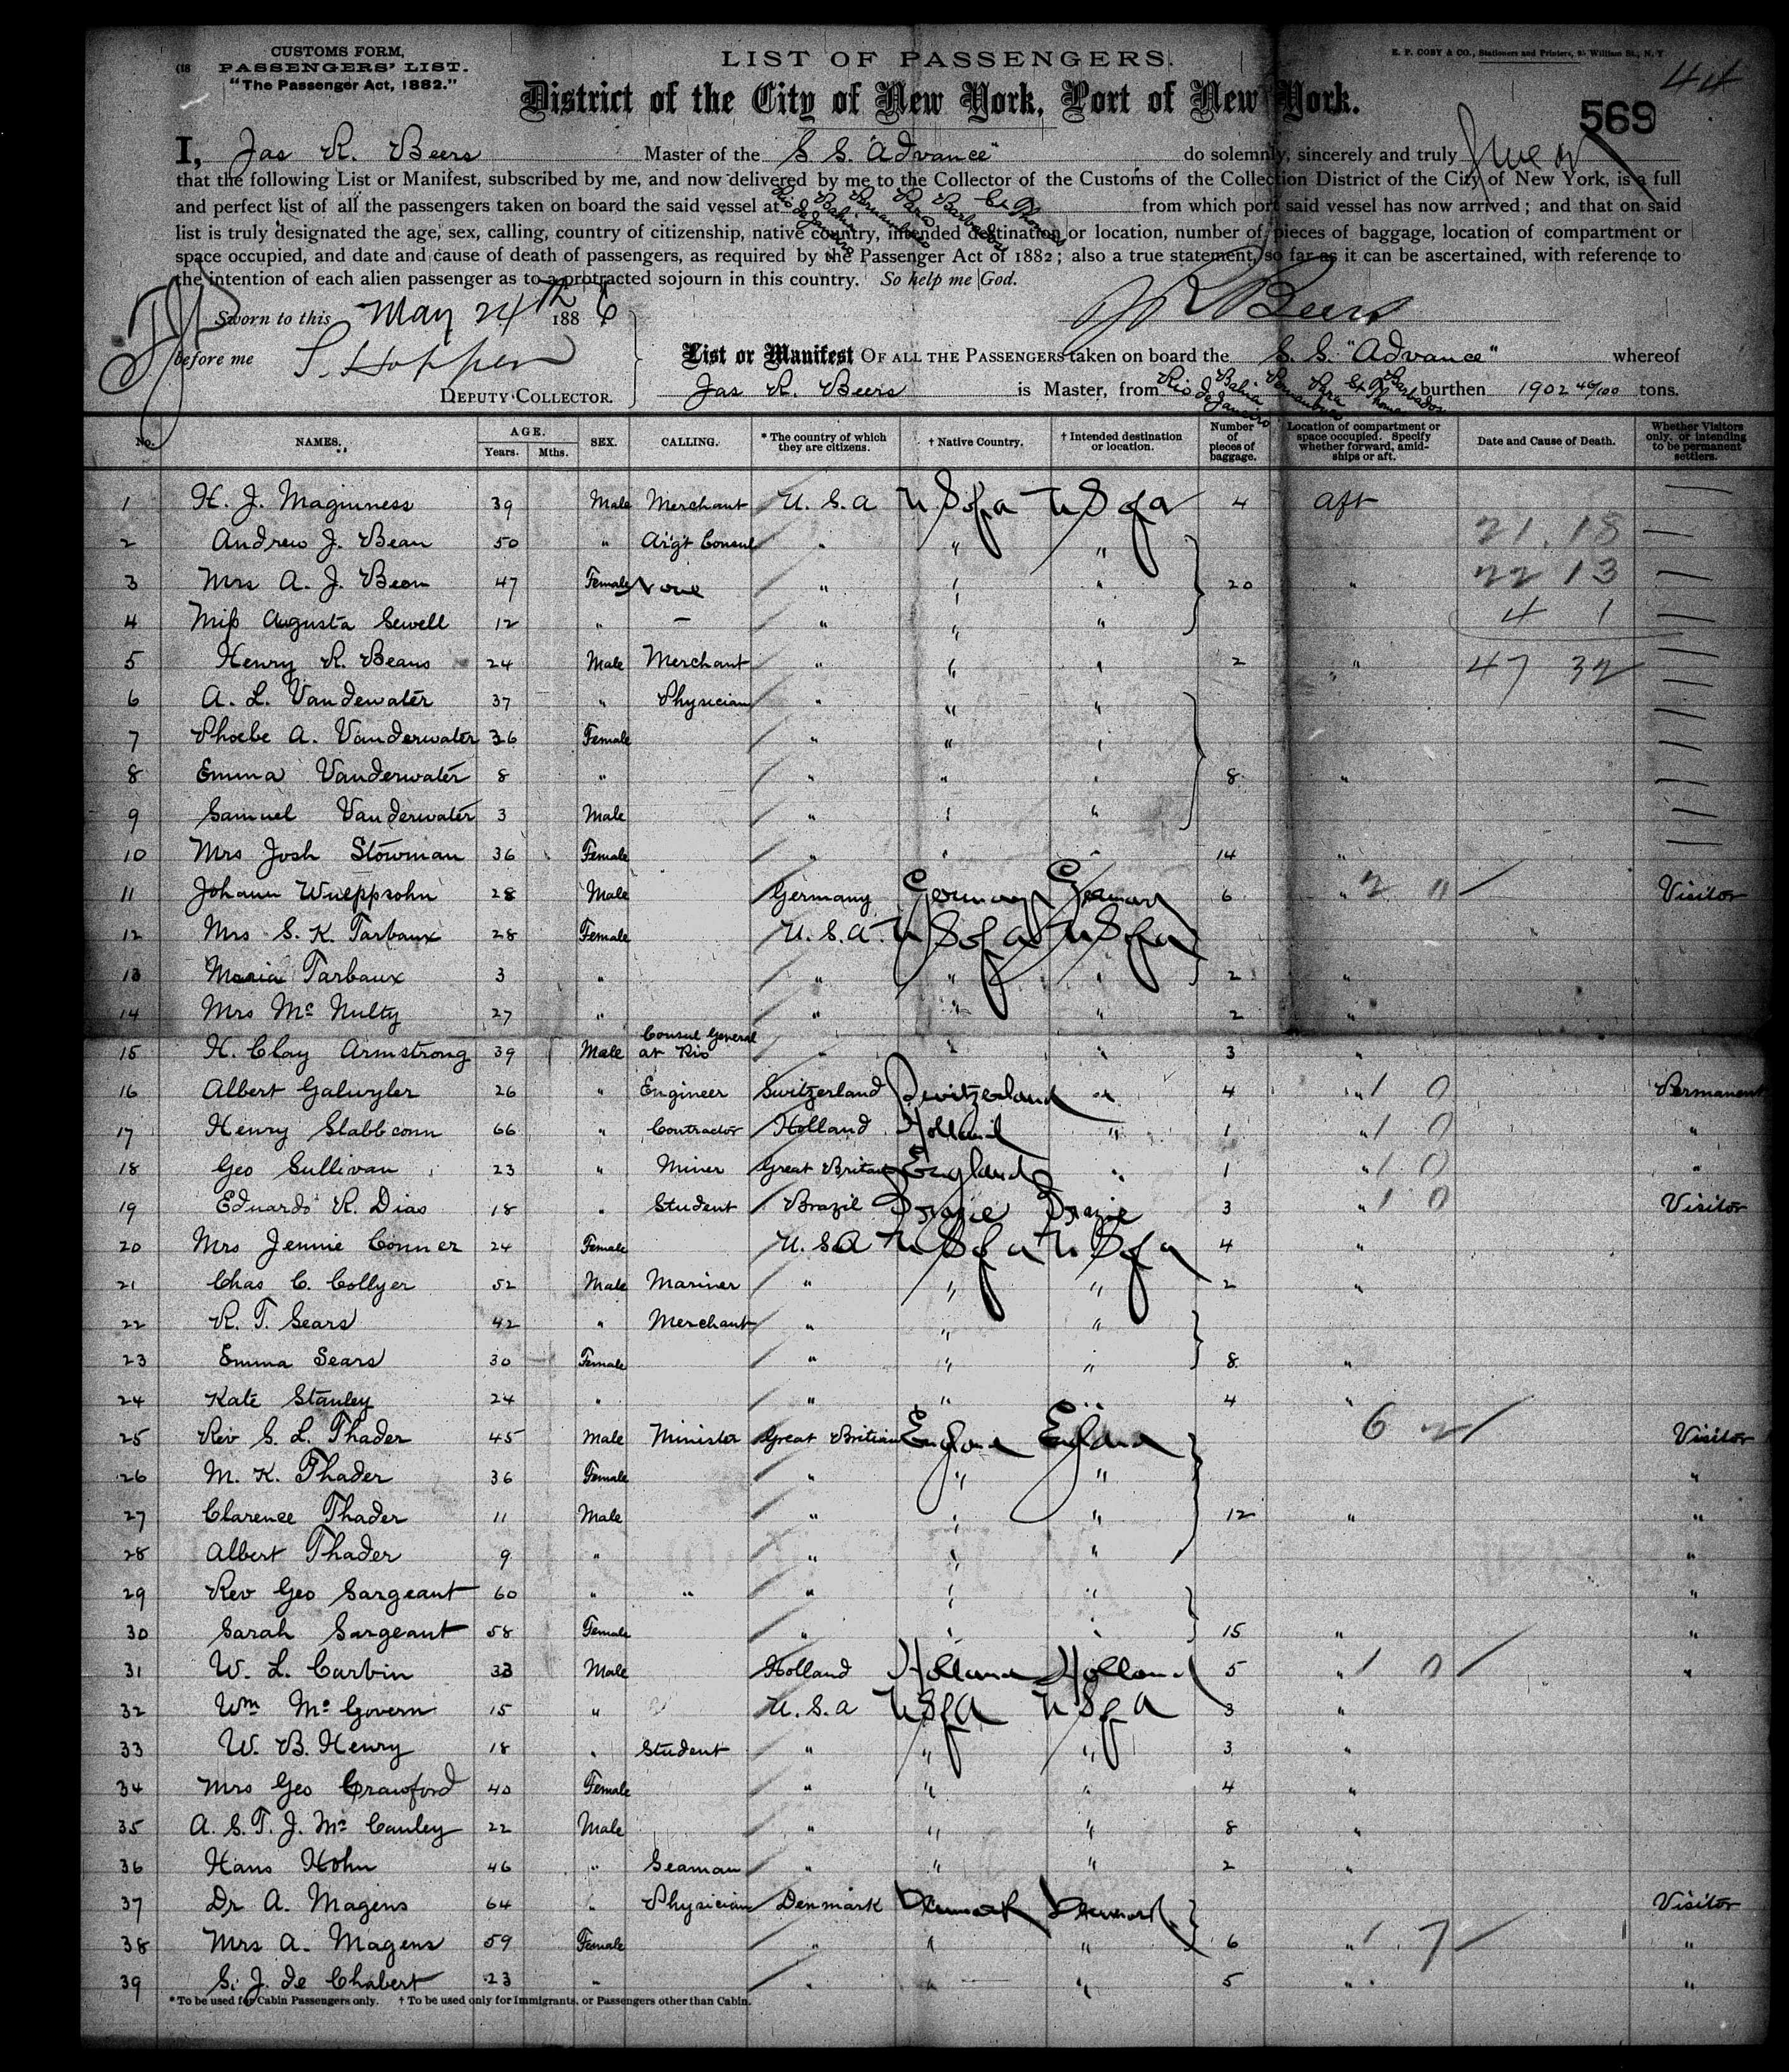 CUSTOMS FORM,
PASSENGERS' LIST.
"The Passenger Act, 1882."
LIST OF PASSENGERS.
E. P. COBY & CO., Stationers and Printers, William St., N. Y.
44
District of the City of New York, Port of New York.
569
I, Jas R. Beers Master of the S. S. "Advance" do solemnly, sincerely and truly swear
that the following List or Manifest, subscribed by me, and now delivered by me to the Collector of the Customs of the Collection District of the City of New York, is a full
and perfect list of all the passengers taken on board the said vessel at Rio de Janeiro Bahia Pernambuco Para Barbados St Thomas from which port said vessel has now arrived; and that on said
list is truly designated the age, sex, calling, country of citizenship, native country, intended destination or location, number of pieces of baggage, location of compartment or
space occupied, and date and cause of death of passengers, as required by the Passenger Act of 1882; also a true statement, so far as it can be ascertained, with reference to
the intention of each alien passenger as to a protracted sojourn in this country. So help me God.
Sworn to this May 24th 1886
J R Beers
before me S. Hopper
List or Manifest OF ALL THE PASSENGERS taken on board the S. S. "Advance" whereof
DEPUTY COLLECTOR.
Jas R. Beers is Master, from Rio de Janeiro Bahia Pernambuco Para St Thomas Barbados burthen 1902 46/100 tons.
No. NAMES. AGE. Years. Mths. SEX. CALLING. * The country of which they are citizens. † Native Country. † Intended destination or location. Number of pieces of baggage. Location of compartment or space occupied. Specify whether forward, amidships or aft. Date and Cause of Death. Whether Visitors only, or intending to be permanent settlers.
1 H. J. Maginness 39 Male Merchant U. S. A U S of a U S of a 4 aft
2 Andrew J. Bean 50 " Arg't Consul " " " 21. 18
3 Mrs A. J. Bean 47 Female None " " " 20 " 22 13
4 Miss Augusta Sewell 12 " — " " " 4 1
5 Henry R. Beans 24 Male Merchant " " " 2 " 47 32
6 A. L. Vandewater 37 " Physician " " "
7 Phoebe A. Vanderwater 36 Female " " "
8 Emma Vanderwater 8 " " " " 8 "
9 Samuel Vanderwater 3 Male " " "
10 Mrs Josh Slowman 36 Female " " " 14 "
11 Johann Wueppsohn 28 Male Germany Germany Germany 6 " 2 0 Visitor
12 Mrs S. K. Tarbaux 28 Female U. S. A. U S of a U S of a
13 Maria Tarbaux 3 " " " " 2 "
14 Mrs Mc Nulty 27 " " " " 2 "
15 H. Clay Armstrong 39 Male Consul General at Rio " " " 3 "
16 Albert Galwyler 26 " Engineer Switzerland Switzerland " 4 " 1 0 Permanent
17 Henry Slabbconn 66 " Contractor Holland Holland " 1 " 1 0 "
18 Geo Sullivan 23 " Miner Great Britain England " 1 " 1 0 "
19 Eduardo R. Dias 18 " Student Brazil Brazil Brazil 3 " 1 0 Visitor
20 Mrs Jennie Conner 24 Female U. S. A U S of a U S of a 4 "
21 Chas C. Collyer 52 Male Mariner " " " 2 "
22 R. T. Sears 42 " Merchant " " "
23 Emma Sears 30 Female " " " 8 "
24 Kate Stanley 24 " " " " 4 "
25 Rev S. L. Thader 45 Male Minister Great Britian England England 6 2 Visitor
26 M. K. Thader 36 Female " " " "
27 Clarence Thader 11 Male " " " 12 " "
28 Albert Thader 9 " " " " "
29 Rev Geo Sargeant 60 " " " " " "
30 Sarah Sargeant 58 Female " " " 15 " "
31 W. L. Carbin 33 Male Holland Holland Holland 5 " 1 0 "
32 Wm Mc Govern 15 " U. S. a U S of A U S of A 3 "
33 W. B. Henry 18 " Student " " " 3 "
34 Mrs Geo Crawford 40 Female " " " 4 "
35 A. S. T. J. Mc Cauley 22 Male " " " 8 "
36 Hans Hohn 46 " Seaman " " " 2 "
37 Dr A. Magens 64 " Physician Denmark Denmark Denmark Visitor
38 Mrs A. Magens 59 Female " " " 6 " 1 7 "
39 S. J. de Chabert 23 " " " " 5 " "
* To be used for Cabin Passengers only. † To be used only for Immigrants, or Passengers other than Cabin.